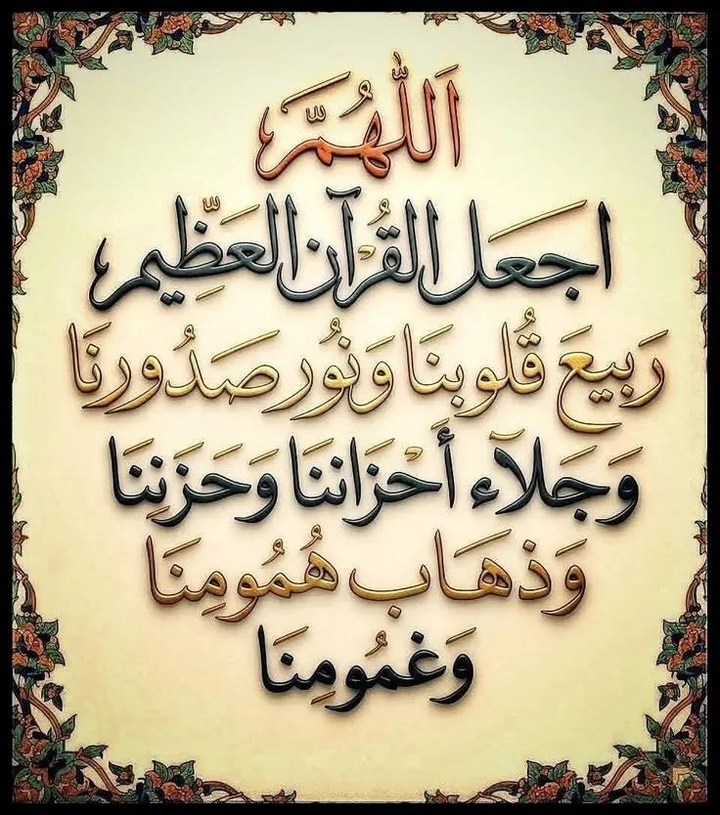 اَللّٰهُمَّ
اجعَل القُرْآن العَظِّيم
رَبيعَ قُلوبنَا وَنُور صَدُورنَا
وَجَلآء أَحْزَاننَا وَحَزَنِنَا
وَذهَاب هُمُومِنَا
وَغمُومِنَا